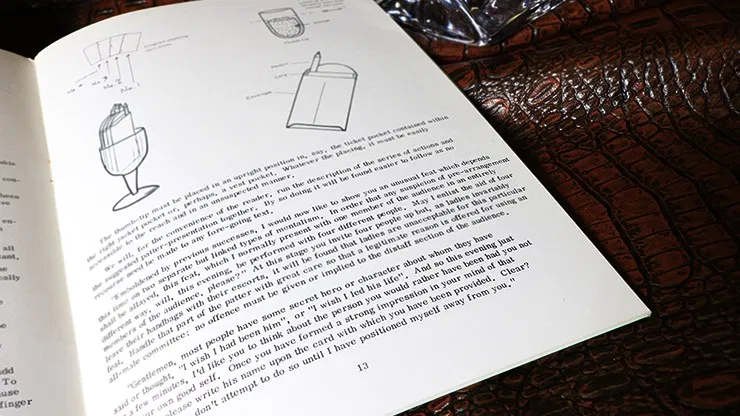 The thumb-tip must be placed in an upright position in, say, the ticket pocket contained within
the right jacket pocket or, perhaps, a vest pocket. Whatever the placing, it must be easily
accessible to be reach and in an unsuspected manner.
We will, for the convenience of the reader, run the description of the series of actions and
the suggested patter-presentation together. By so doing it will be found easier to follow as no
recourse need be made to any fore-going text.
"Emboldened by previous successes, I would now like to show you an unusual feat which depends
this time on two separate but linked types of mentalism. In order that any suspicion of pre-arrangement
shall be allayed, this feat, which I normally present with one member of the audience in an entirely
different way, will, this evening, be performed with four different people. May I enlist the aid of four
members of the audience, please?" At this stage you invite four people up but, as ladies invariably
leave their handbags with their escorts, it will be found that ladies are unacceptable for this particular
feat. Handle that part of the patter with great care so that a legitimate reason is offered for using an
all-male committee: no offence must be given or implied to the distaff section of the audience.
"Gentlemen, most people have some secret hero or character about whom they have
said or thought, "I wish I had been him", or "I wish I led his life". And so this evening just
a few minutes, I'd like you to think about the person you would rather have been had you not
your own good self. Once you have formed a strong impression in your mind of that
please write his name upon the card with which you have been provided. Clear?
don't attempt to do so until I have positioned myself away from you."
13
all
To
finger